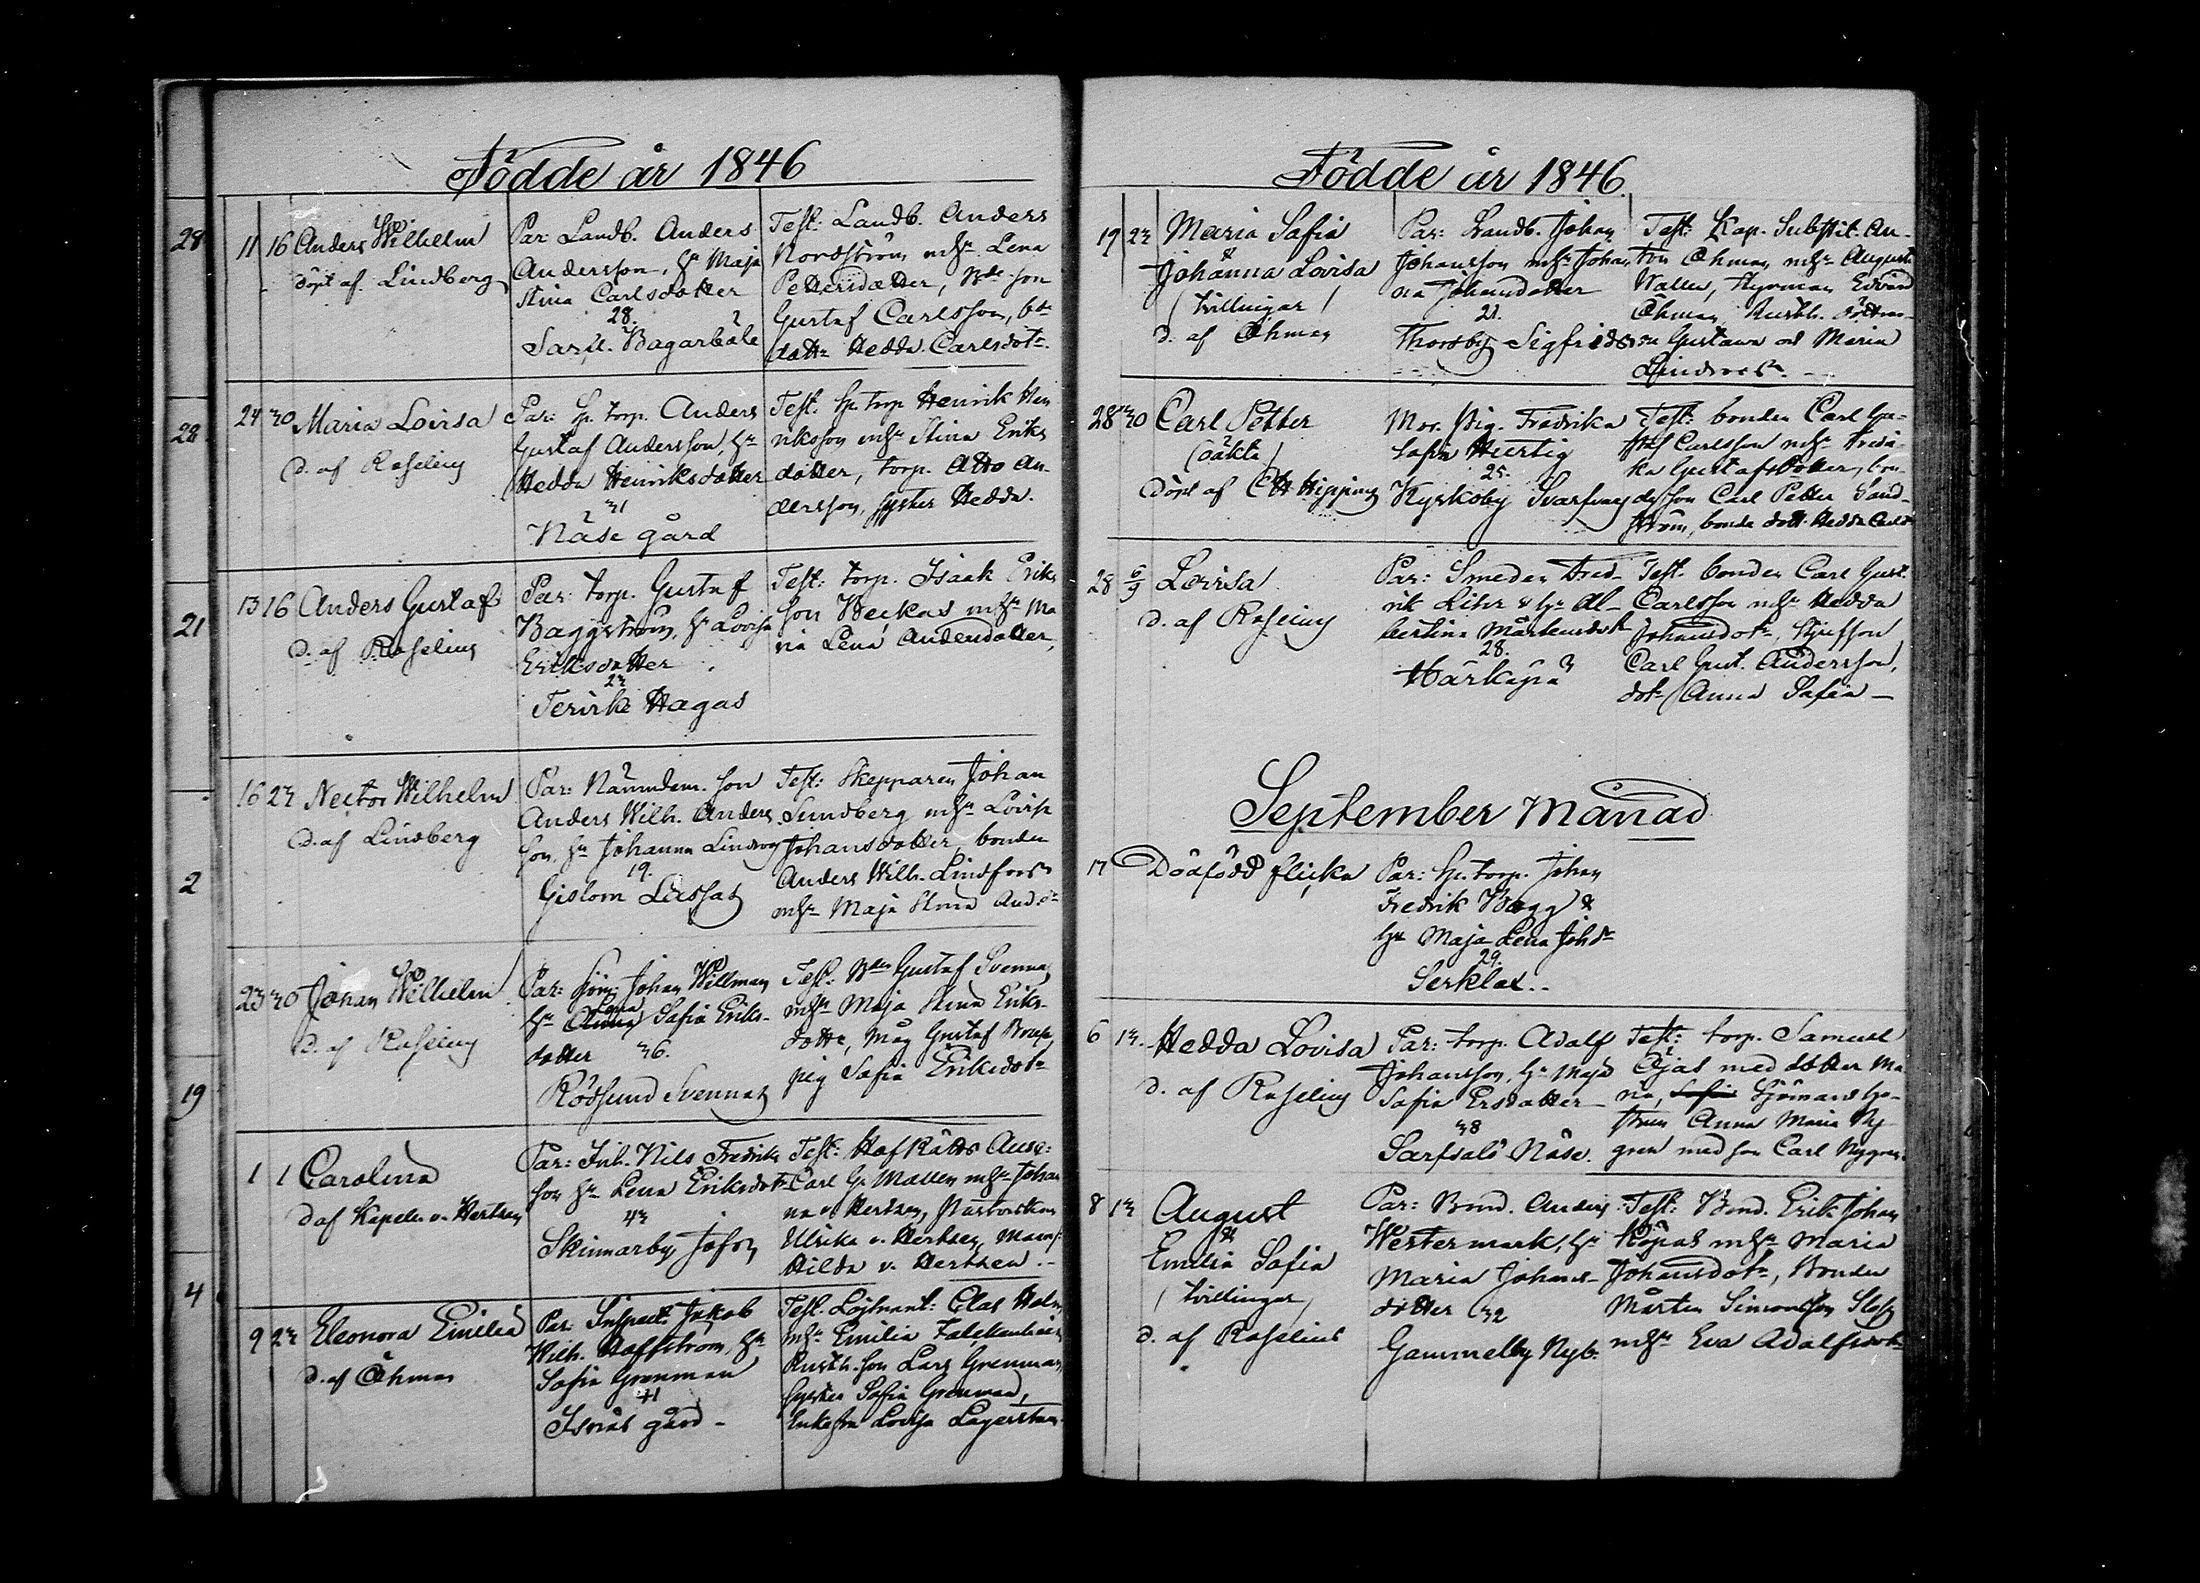 Födde år 1846
28
11 16 Anders Wilhelm
döpt af Lindberg
Par: Landb. Anders
Andersson, hu Maja
Stina Carlsdotter
28.
Sarfs. Bagarböle
Test: Landb. Anders
Nordström mhu Lena
Pettersdotter, Bde son
Gustaf Carlsson, bde
dottr Hedda Carlsdotr.
28
24 30 Maria Lovisa
d. af Roselius
Par: torp. Anders
Gustaf Andersson, hu
Hedda Henriksdotter
31
Näse gård
Test. torp Henrik Hen
riksson mhu Stina Eriks
dotter, torp. Otto An
dersson, syster Hedda.
21
13 16 Anders Gustaf
d. af Roselius
Par: torp. Gustaf
Baggström, hu Lovisa
Eriksdotter
23
Terirke Hagas
Test: torp. Isaak Eriks
son Weckas mhu Ma
ria Lena Andersdotter,
2
16 23 Nestor Wilhelm
d. af Lindberg
Par: Nämndem. son
Anders Wilh. Anders
son, hu Johanna Lindroos
19.
Gislom Lassas
Test: Skepparen Johan
Sundberg mhu Lovisa
Johansdotter, bonden
Anders Wilh. Lindfors
mhu Maja Stina Andsdr
19
23 30 Johan Wilhelm
d. af Roselius
Par: Sjöm. Johan Willman
hu Anna Lena Sofia Eriks-
dotter 36.
Rödsund Svennas
Test: Bden Gustaf Svennas
mhu Maja Stina Eriks-
dotter, Måg Gustaf
pig Sofia Eriksdotr
4
1 1 Carolina
d af Kapelln v. Hertzen
Par: Inh. Nils Fredriks
son hu Lena Eriksdotr
43
Skinnarby Jofs
Test: HofRätts Ausc:
Carl G. Wallen mhu Johan
na v Hertzen, Pastorskan
Ulrika v. Hertzen, Mams:
Hilda v. Hertzen.
9 23 Eleonora Emilia
d. af Öhman
Par: Inspect. Jakob
Wilh. Hoffström, hu
Sofia Grenman
41
Isnäs gård -
Test. Löjtnant: Clas Holm
mhu Emilia
Rusth. son Lars Grenman,
syster Sofia Grenman,
Enkefru Lovisa Lagerstam

Födde år 1846.
19 23 Maria Sofia
Johanna Lovisa
(tvillingar)
d. af Öhman
Par: Landb. Johan
Johansson mhu Johan
na Johansdotter
21.
Thorsby Sigfrids
Test: Kap. Substit. An-
ton Öhman mhu Augusta
Wallen, Styrman Edvard
Öhman, Rusth. döttrar-
na Gustava och Maria
Lindroos.
28 30 Carl Petter
(oäkta)
döpt af CH Hipping
Mor. Pig. Fredrika
Sofia Hurtig
25.
Kyrkoby Svarfvas
Test: bonden Carl Gu-
staf Carlsson mhu Fredri-
ka Gustafsdotter, bon-
deson Carl Petter Sand-
ström, bonde dott. Hedda Carlsd
28 6/9 Lovisa
d. af Roselius
Par: Smeden Fred-
rik Lihr & hu Al-
bertina Mårtensdotr
28.
Härkäpä
Test. bonden Carl Gust.
Carlsson mhu Hedda
Johansdotr, Styfson
Carl Gust. Andersson,
dotr Anna Sofia —

September Månad
17 Dödfödd flicka
Par: torp. Johan
Fredrik Bagg &
hu Maja Lena Johdr
29.
Serklax.
6 13. Hedda Lovisa
d. af Roselius
Par: torp. Adolf
Johansson, hu Maja
Sofia Ersdotter
38
Sarfsalö Näse.
Test: torp. Samuel
Öjas med dotter Ma
ria, Sofia Sjömans hu-
strun Anna Maria Ny
gren med son Carl Nygren.
8 13 August
&
Emilia Sofia
(tvillingar)
d. af Roselius
Par: Bond. Anders
Westermark, hu
Maria Johans-
dotter 32
Gammelby Nyb.
Test: Bond. Erik Johan
Köpas mhu Maria
Johansdotr, Bonden
Mårten Simonsson
mhu Eva Adolfsdotr